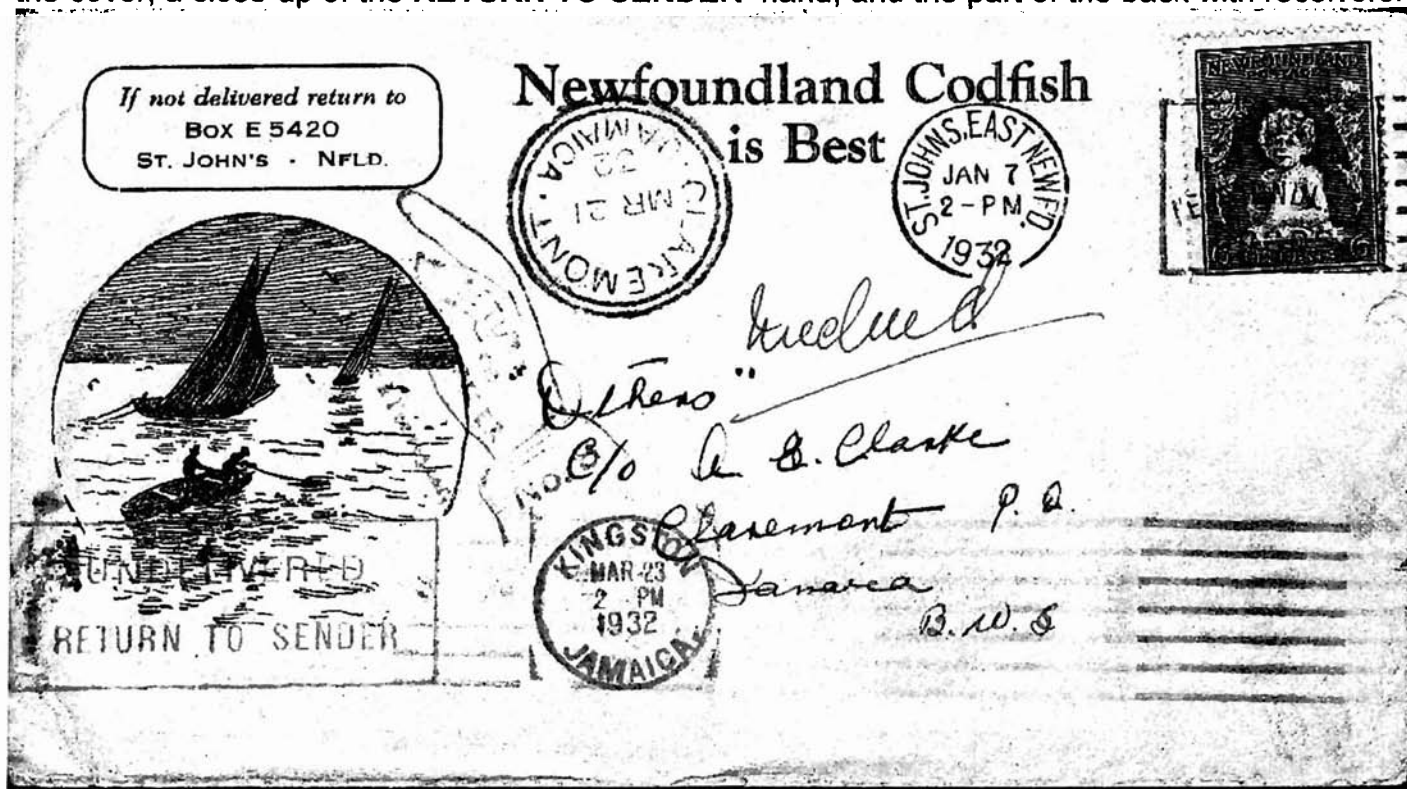 If not delivered return to
BOX E 5420
ST. JOHN'S · NFLD.
Newfoundland Codfish
is Best
CLAREMONT · JAMAICA ·
MR 21
32
ST. JOHNS, EAST NEWF'D.
JAN 7
2 - PM
1932
NEWFOUNDLAND
POSTAGE
C/o A. E. Clarke
Claremont P. O.
Jamaica
B. W. I
KINGSTON
MAR-23
2 PM
1932
JAMAICA.
UNDELIVERED
RETURN TO SENDER